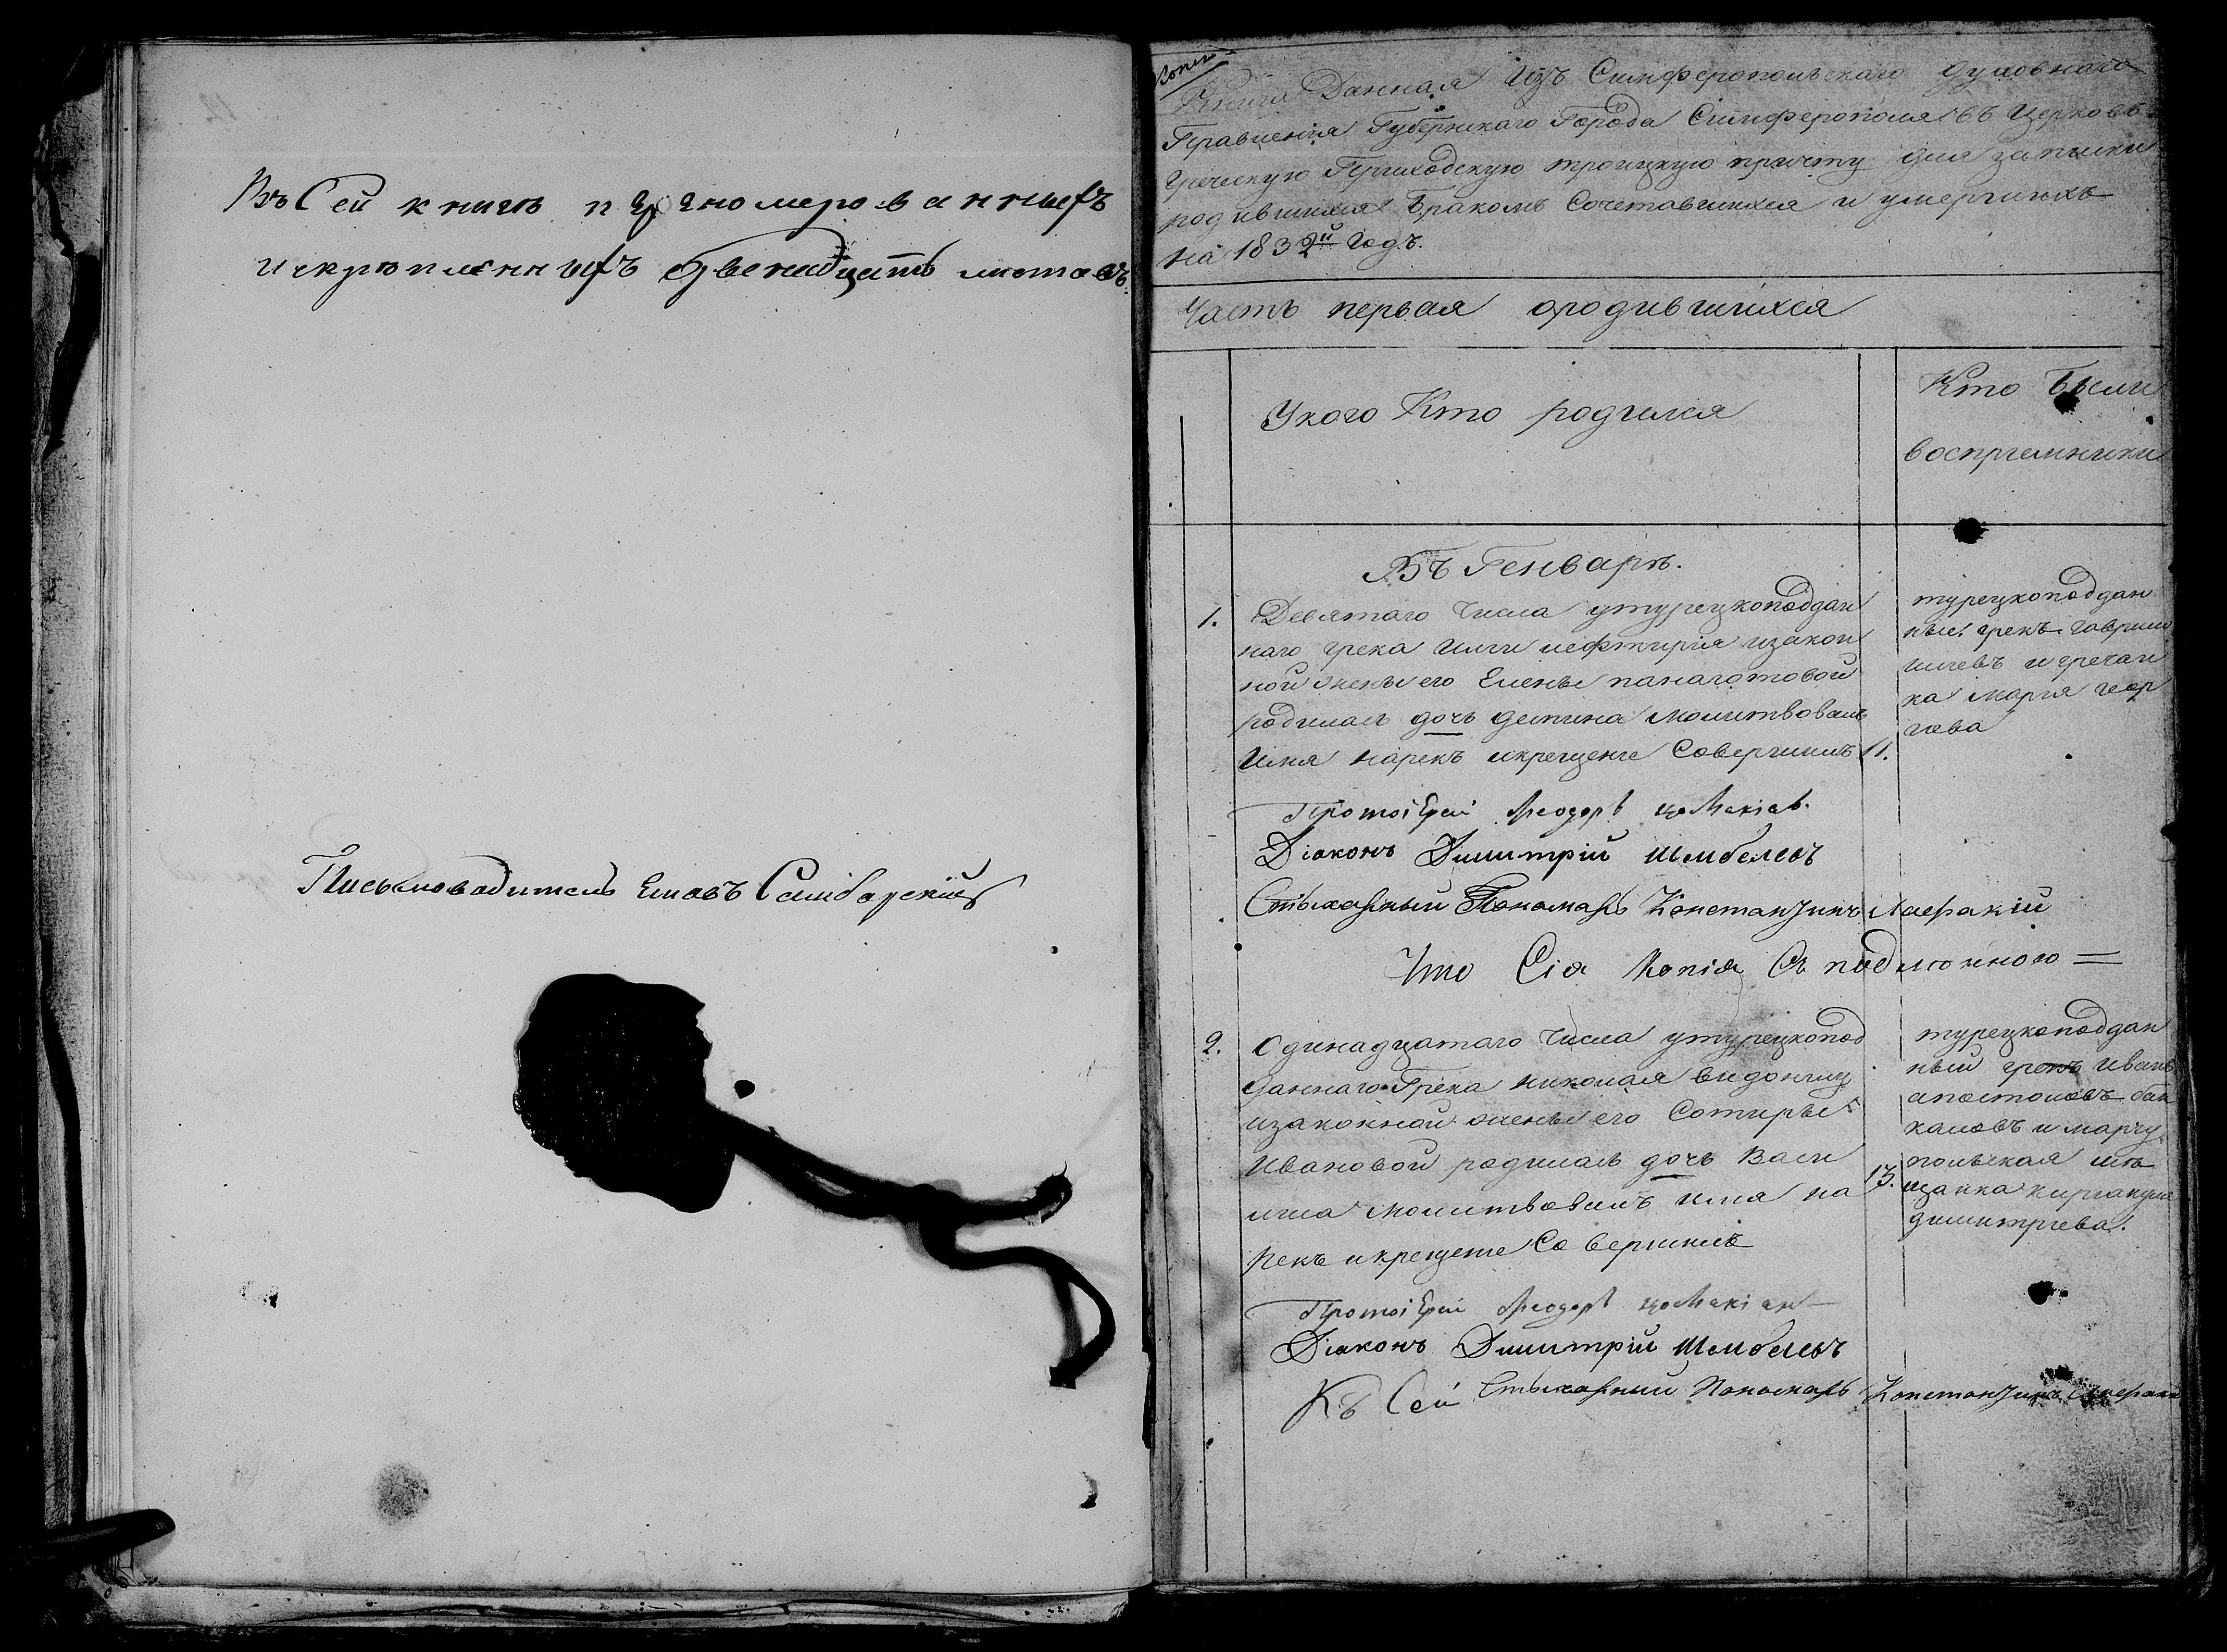 Въ Сей книгѣ прономерованныхъ
искрѣпленныхъ двенадцать листовъ.
Письмоводитель
Копія
Книга Данная Изъ Симферопольскаго Духовнаго
Правленія Губернскаго Города Симферополя въ Церковь
греческую Приходскую троицкую причту для записки
родившихся Бракомъ Сочетавшихся и умершихъ
на 1832й Годъ.
Часть первая ородившихся
Укого Кто родился
Кто Были
воспріемники
Въ Генварѣ.
1. Девятаго Числа утурецкоподдан
наго грека Ильи лефтирія изакон
ной жены его Елены панаготовой
родилась дочь деспина молитвовалъ
Имя нарекъ икрещеніе Совершилъ 11.
турецкоподдан
ный грекъ гаврила
ильевъ и гречан
ка марія геор
гіева
Протоіерей Феодоръ
Діаконъ Димитрій Шембелевъ
Стыхарный Пономарь Константинъ
Что Сія Копія Съ подлинною =
2. Одинадцатаго Числа утурецкопод
даннаго Грека николая
изаконной жены его Сотиры
Ивановой родилась дочь Васи
лиса молитвовалъ имя на 13.
рекъ икрещеніе Совершилъ
турецкоподдан
ный грекъ Иванъ
апостоловъ бак
каловъ и маріу
польская мѣ
щанка киріакула
димитріева.
Протоіерей Феодоръ
Діаконъ Димитрій Шембелевъ
Къ Сей Стыхарный Пономарь Константинъ